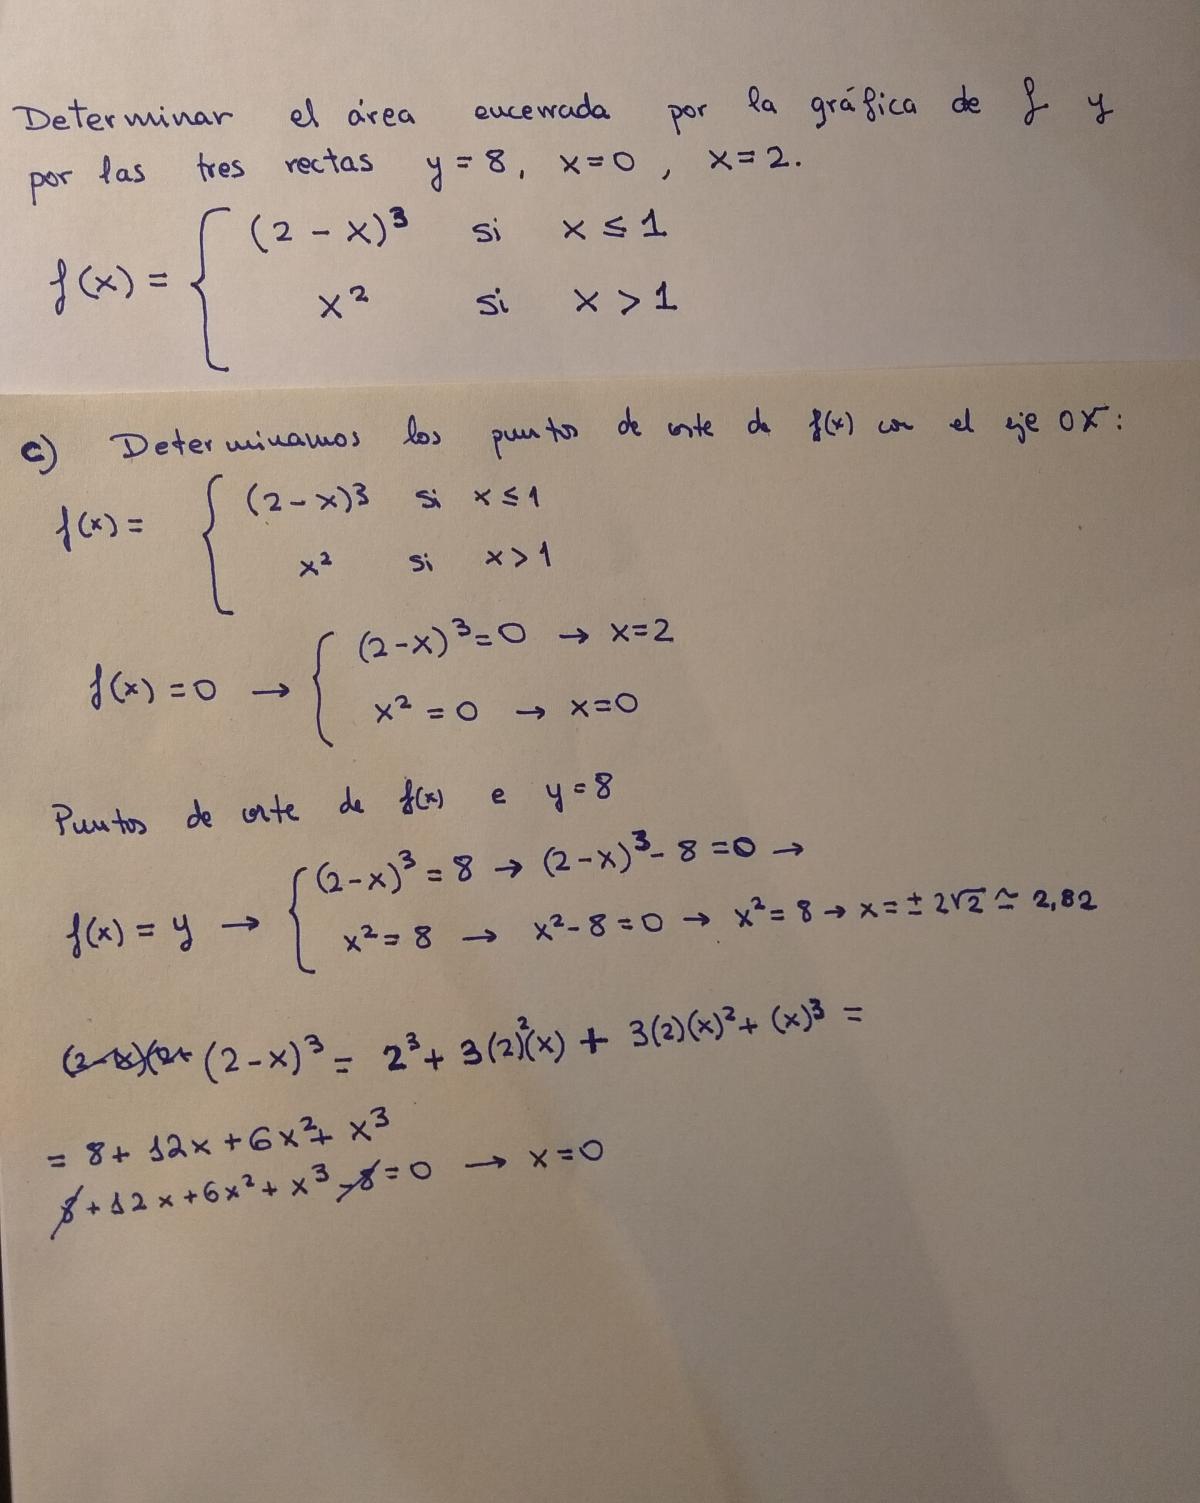 Determinar el área encerrada por la gráfica de f y
por las tres rectas y = 8, x = 0, x = 2.
f(x) = { (2 - x)³ si x ≤ 1
x² si x > 1
c) Determinamos los puntos de corte de f(x) con el eje OX:
f(x) = { (2 - x)³ si x ≤ 1
x² si x > 1
f(x) = 0 → { (2-x)³ = 0 → x = 2
x² = 0 → x = 0
Puntos de corte de f(x) e y = 8
f(x) = y → { (2-x)³ = 8 → (2-x)³ - 8 = 0 →
x² = 8 → x² - 8 = 0 → x² = 8 → x = ± 2√2 ≃ 2,82
(2-x)³ = 2³ + 3(2)²(x) + 3(2)(x)² + (x)³ =
= 8 + 12x + 6x² + x³
8 + 12x + 6x² + x³ - 8 = 0 → x = 0